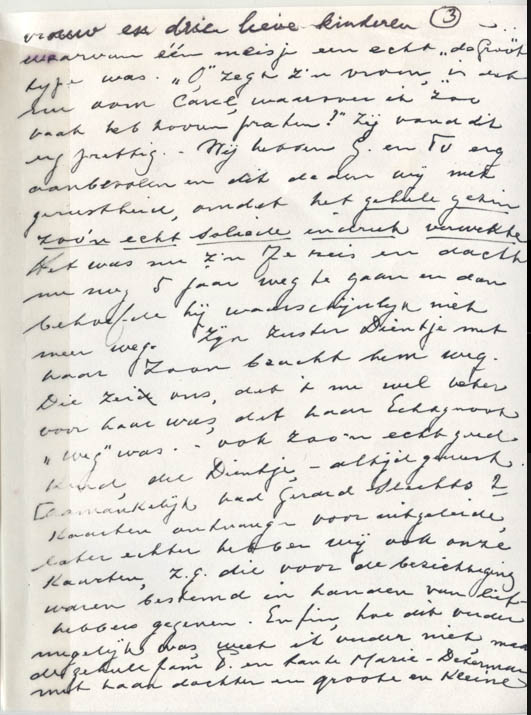 vrouw en drie lieve kinderen (3)
waarvan één meisje een echt „de Groot"
type was. „O," zegt z'n vrouw, „is dit
nu oom Carel, waarover ik zoo
vaak heb hooren praten?" Zij vond dit
erg prettig. - Wij hebben G. en Tv erg
aanbevolen en dit deden wij met
gerustheid, omdat het geheele gezin
zoo'n echt soliede indruk verwekte
Het was nu z'n 7e reis en dacht
nu nog 5 jaar weg te gaan en dan
behoefde hij waarschijnlijk niet
meer weg. Zijn zuster Dientje met
haar Zoon bracht hem weg.
Die zeide ons, dat 't nu wel beter
voor haar was, dat haar Echtgenoot
„weg" was. - ook zoo'n echt goed
kind, die Dientje, - altijd gewerkt.
[Aanvankelijk had Gerard slechts 2
Kaarten ontvangen voor uitgeleide,
later echter hebben wij ook onze
Kaarten, z.g. die voor de bezichtiging
waren bestemd in handen van lief-
hebbers gegeven. Enfin, hoe dit verder
mogelijk was weet ik verder niet, maar
de geheele fam. en tante Marie -
met haar dochter en groote en Kleine